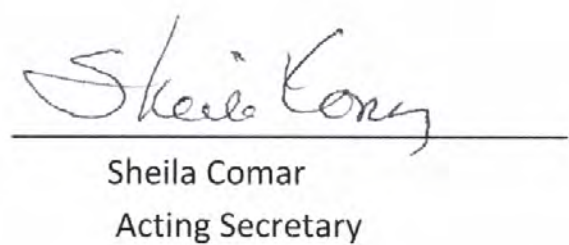 Sheila Comar
Sheila Comar
Acting Secretary